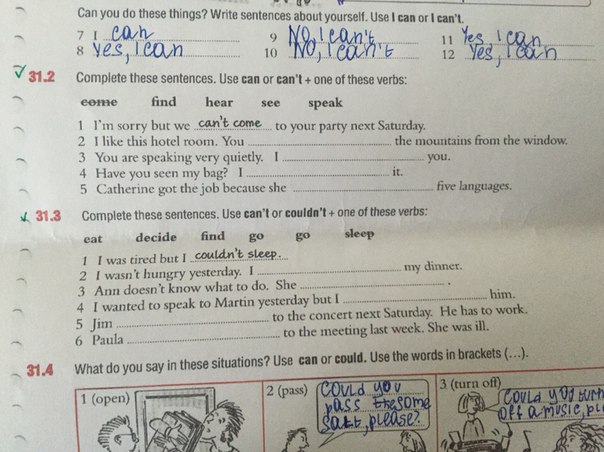 Can you do these things? Write sentences about yourself. Use I can or I can't.
7 I can 9 No, I can't 11 Yes I can
8 Yes, I can 10 No, I can't 12 Yes, I can
31.2 Complete these sentences. Use can or can't + one of these verbs:
come find hear see speak
1 I'm sorry but we can't come to your party next Saturday.
2 I like this hotel room. You the mountains from the window.
3 You are speaking very quietly. I you.
4 Have you seen my bag? I it.
5 Catherine got the job because she five languages.
31.3 Complete these sentences. Use can't or couldn't + one of these verbs:
eat decide find go go sleep
1 I was tired but I couldn't sleep.
2 I wasn't hungry yesterday. I my dinner.
3 Ann doesn't know what to do. She .
4 I wanted to speak to Martin yesterday but I him.
5 Jim to the concert next Saturday. He has to work.
6 Paula to the meeting last week. She was ill.
31.4 What do you say in these situations? Use can or could. Use the words in brackets (...).
1 (open) 2 (pass) 3 (turn off)
Could you
pass the some
salt, please?
Could you turn
off a music, pl